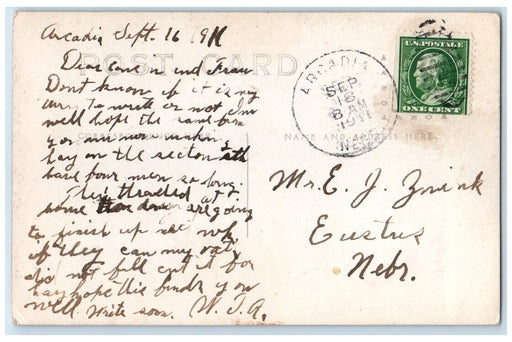 Arcadia Sept. 16 1911
POST CARD
Dear cousin and Frau
Don't know if it is my
turn to write or not I'm
well hope the same from
you am now making
hay on the section
have four men so long.
threshed
some are going
to finish up now
if they can my oats
did not fill cut it for
hay hope this finds you
well. Write soon. W.J.A.
CORRESPONDENCE HERE
NAME AND ADDRESS HERE
ARCADIA
SEP
16
8 AM
1911
NEB.
U.S. POSTAGE
ONE CENT
Mr. E. J.
Eustis
Nebr.